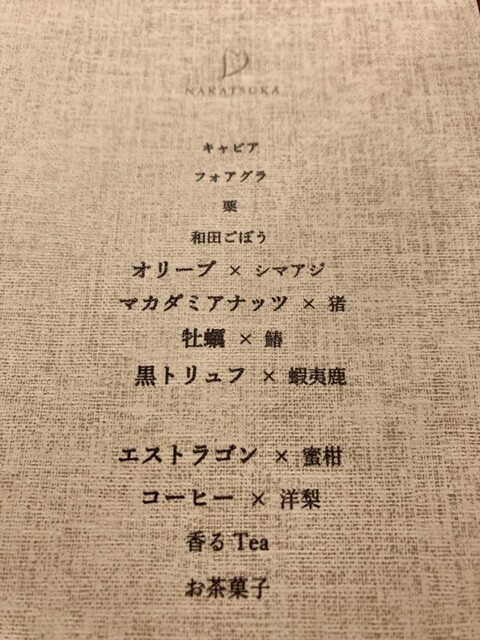 NAKATSUKA
キャビア
フォアグラ
栗
和田ごぼう
オリーブ × シマアジ
マカダミアナッツ × 猪
牡蠣 × 鰆
黒トリュフ × 蝦夷鹿
エストラゴン × 蜜柑
コーヒー × 洋梨
香る Tea
お茶菓子